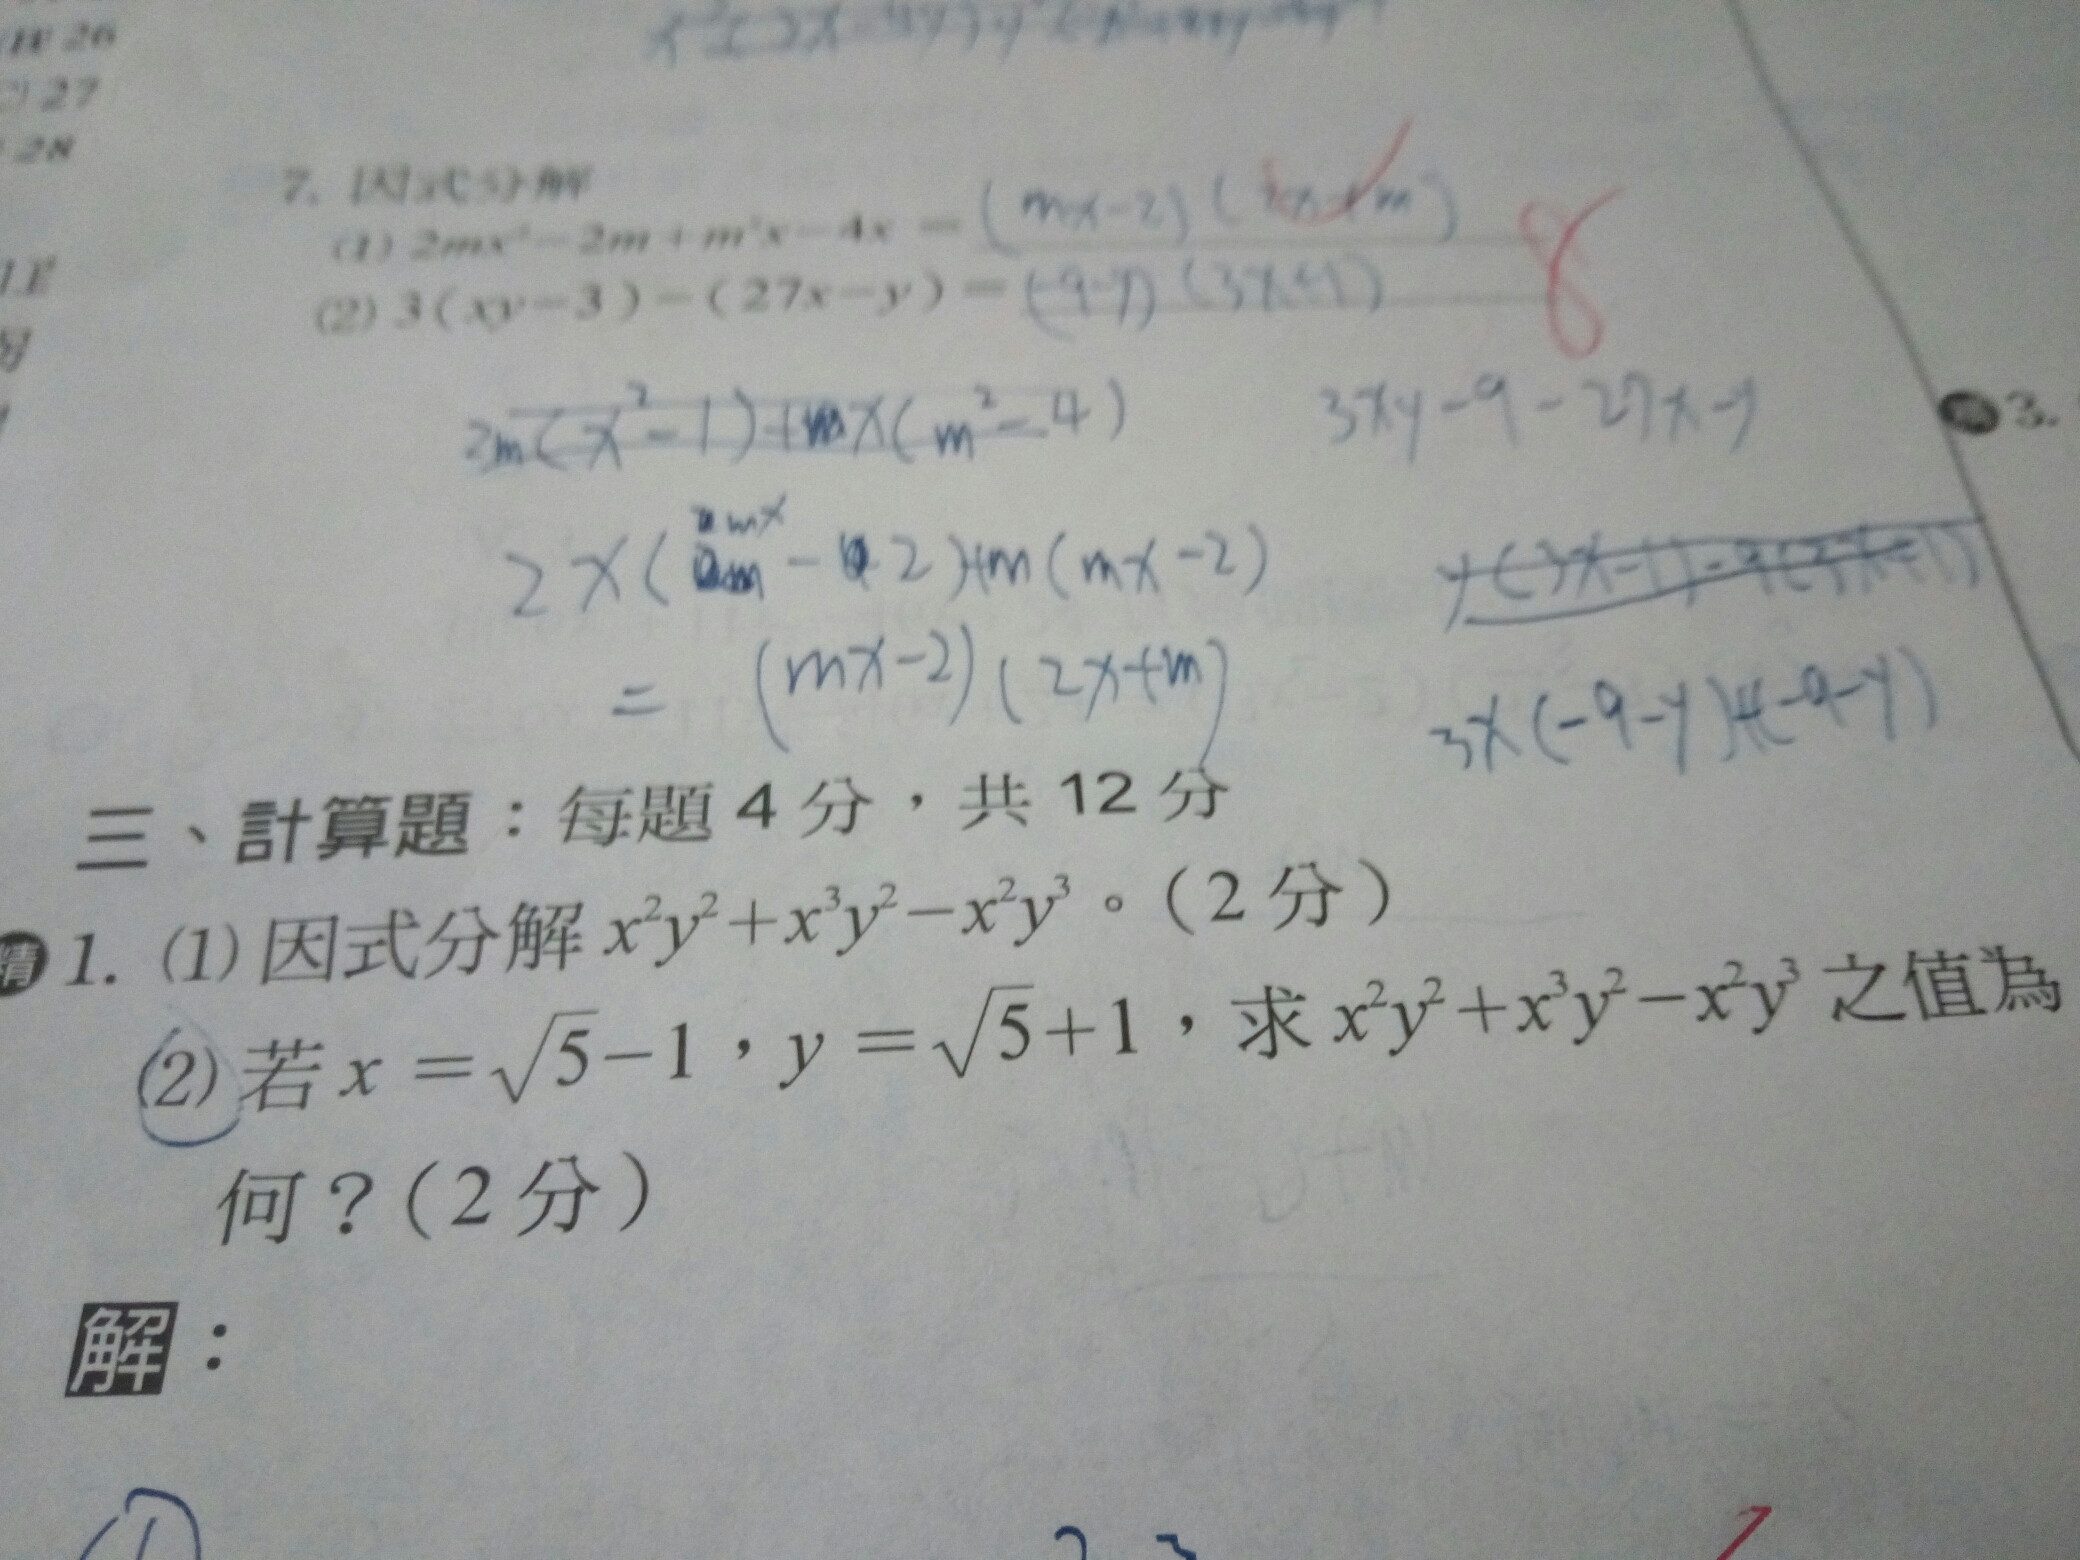 26
27
28
7. 因式分解
(1) 2mx²-2m+m²x-4x = (mx-2)(2x+m)
(2) 3(xy-3)-(27x-y) = (-9-y)(3x+1)
8
2m(x²-1)+mx(m²-4)
3xy-9-27x-y
3.
2x(mx-2)+m(mx-2)
=(mx-2)(2x+m)
3x(-9-y)+(-9-y)
三、計算題：每題 4 分，共 12 分
精 1. (1) 因式分解 x²y²+x³y²-x²y³。(2 分)
(2) 若 x = √5-1，y = √5+1，求 x²y²+x³y²-x²y³ 之值為
何？(2 分)
解：